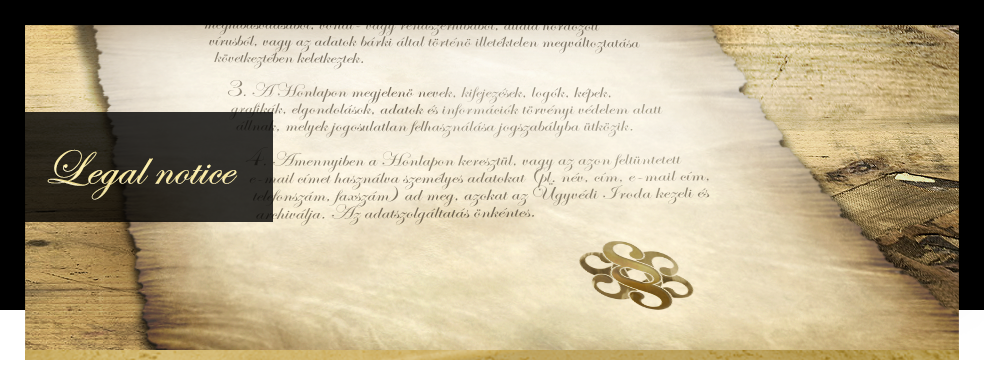 vírusból, vagy az adatok bárki által történő illetéktelen megváltoztatása
következtében keletkeztek.
3. A Honlapon megjelenő nevek, kifejezések, logók, képek,
grafikák, elgondolások, adatok és információk törvényi védelem alatt
állnak, melyek jogosulatlan felhasználása jogszabályba ütközik.
Legal notice
4. Amennyiben a Honlapon keresztül, vagy az azon feltüntetett
e-mail címet használva személyes adatokat (pl. név, cím, e-mail cím,
telefonszám, faxszám) ad meg, azokat az Ügyvédi Iroda kezeli és
archiválja. Az adatszolgáltatás önkéntes.